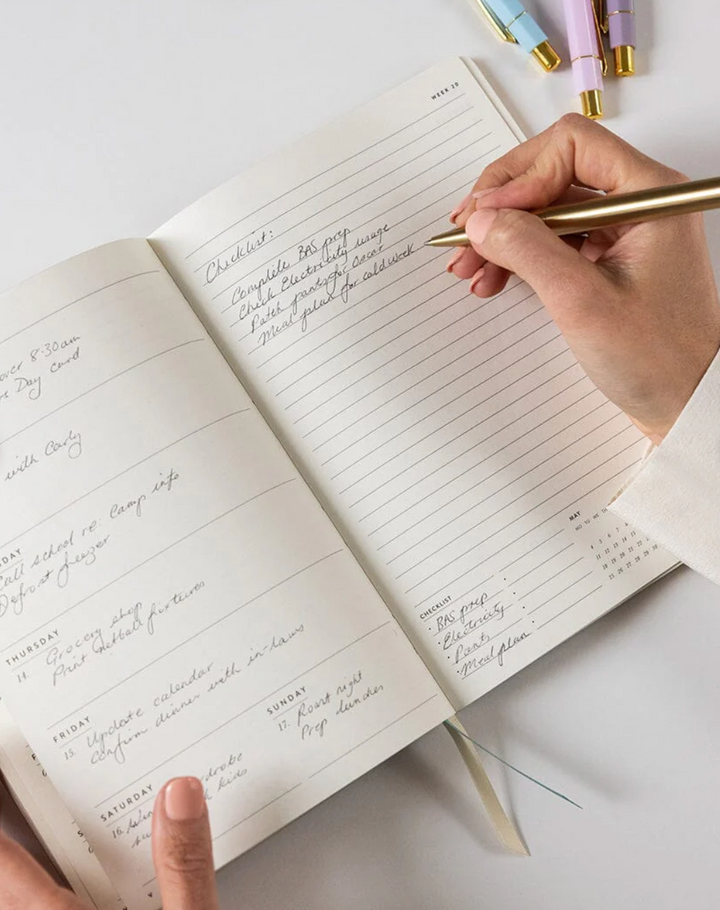 over 8:30am
Day card
with Carly
DAY
Call school re: Camp info
Defrost freezer
THURSDAY
14. Grocery shop
Print netball fixtures
FRIDAY
15. Update calendar
confirm dinner with in-laws
SATURDAY
16.
kids
SUNDAY
17. Roast night
Prep lunches
WEEK 20
Checklist:
Complete BAS prep
Check Electricity usage
Patch pants for Oscar
Meal plan for cold week
CHECKLIST
· BAS prep
· Electricity
· Pants
· Meal plan
MAY
MO TU WE
4 5 6 7
11 12 13 14
18 19 20 21
25 26 27 28